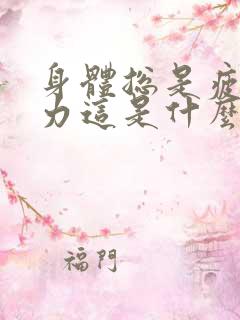 身體總是疲
力這是什麼
福門